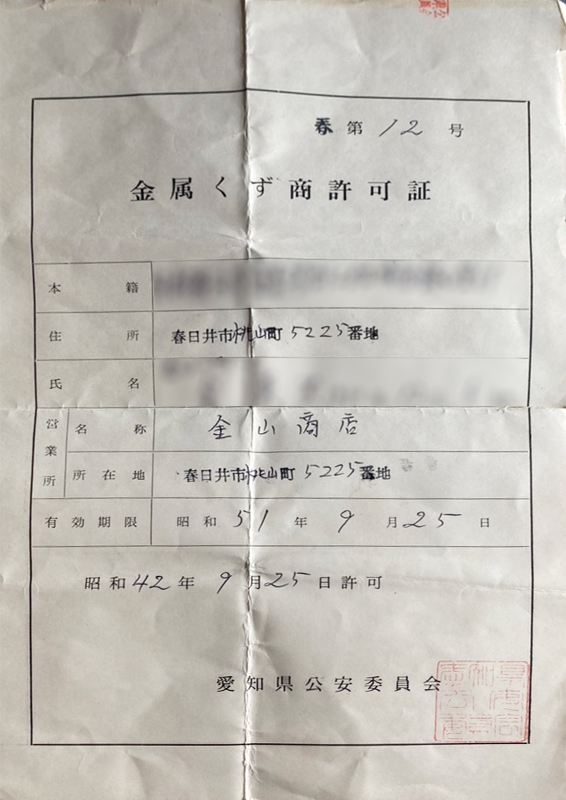 春第12号
金属くず商許可証
本籍
住所 春日井市桃山町5225番地
氏名
営業所 名称 金山商店
所在地 春日井市桃山町5225番地
有効期限 昭和51年9月25日
昭和42年9月25日許可
愛知県公安委員会